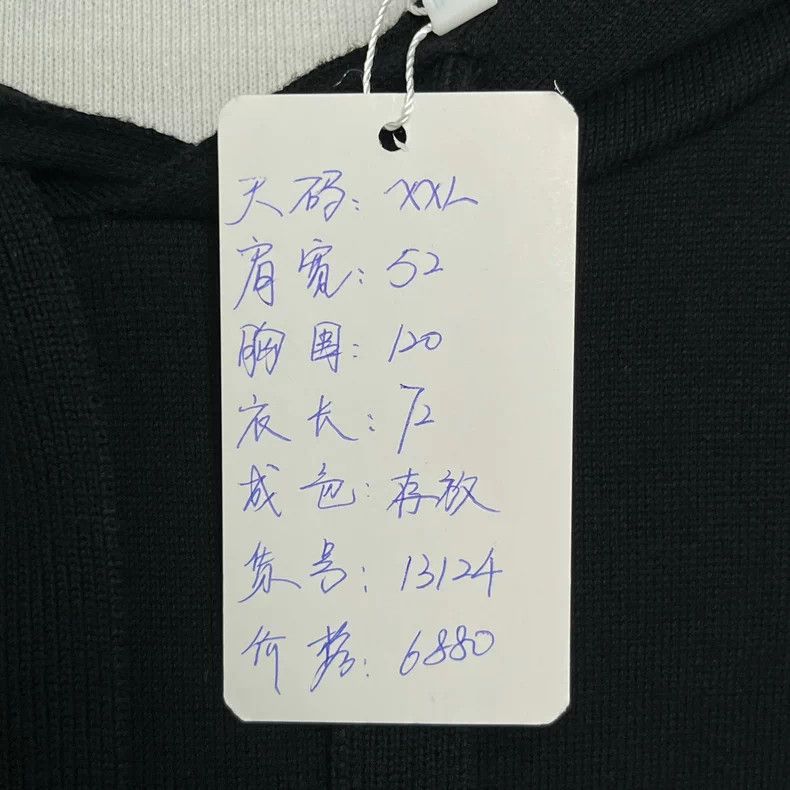 尺码：XXL
肩宽：52
胸围：120
衣长：72
成色：存放
货号：13124
价格：6880